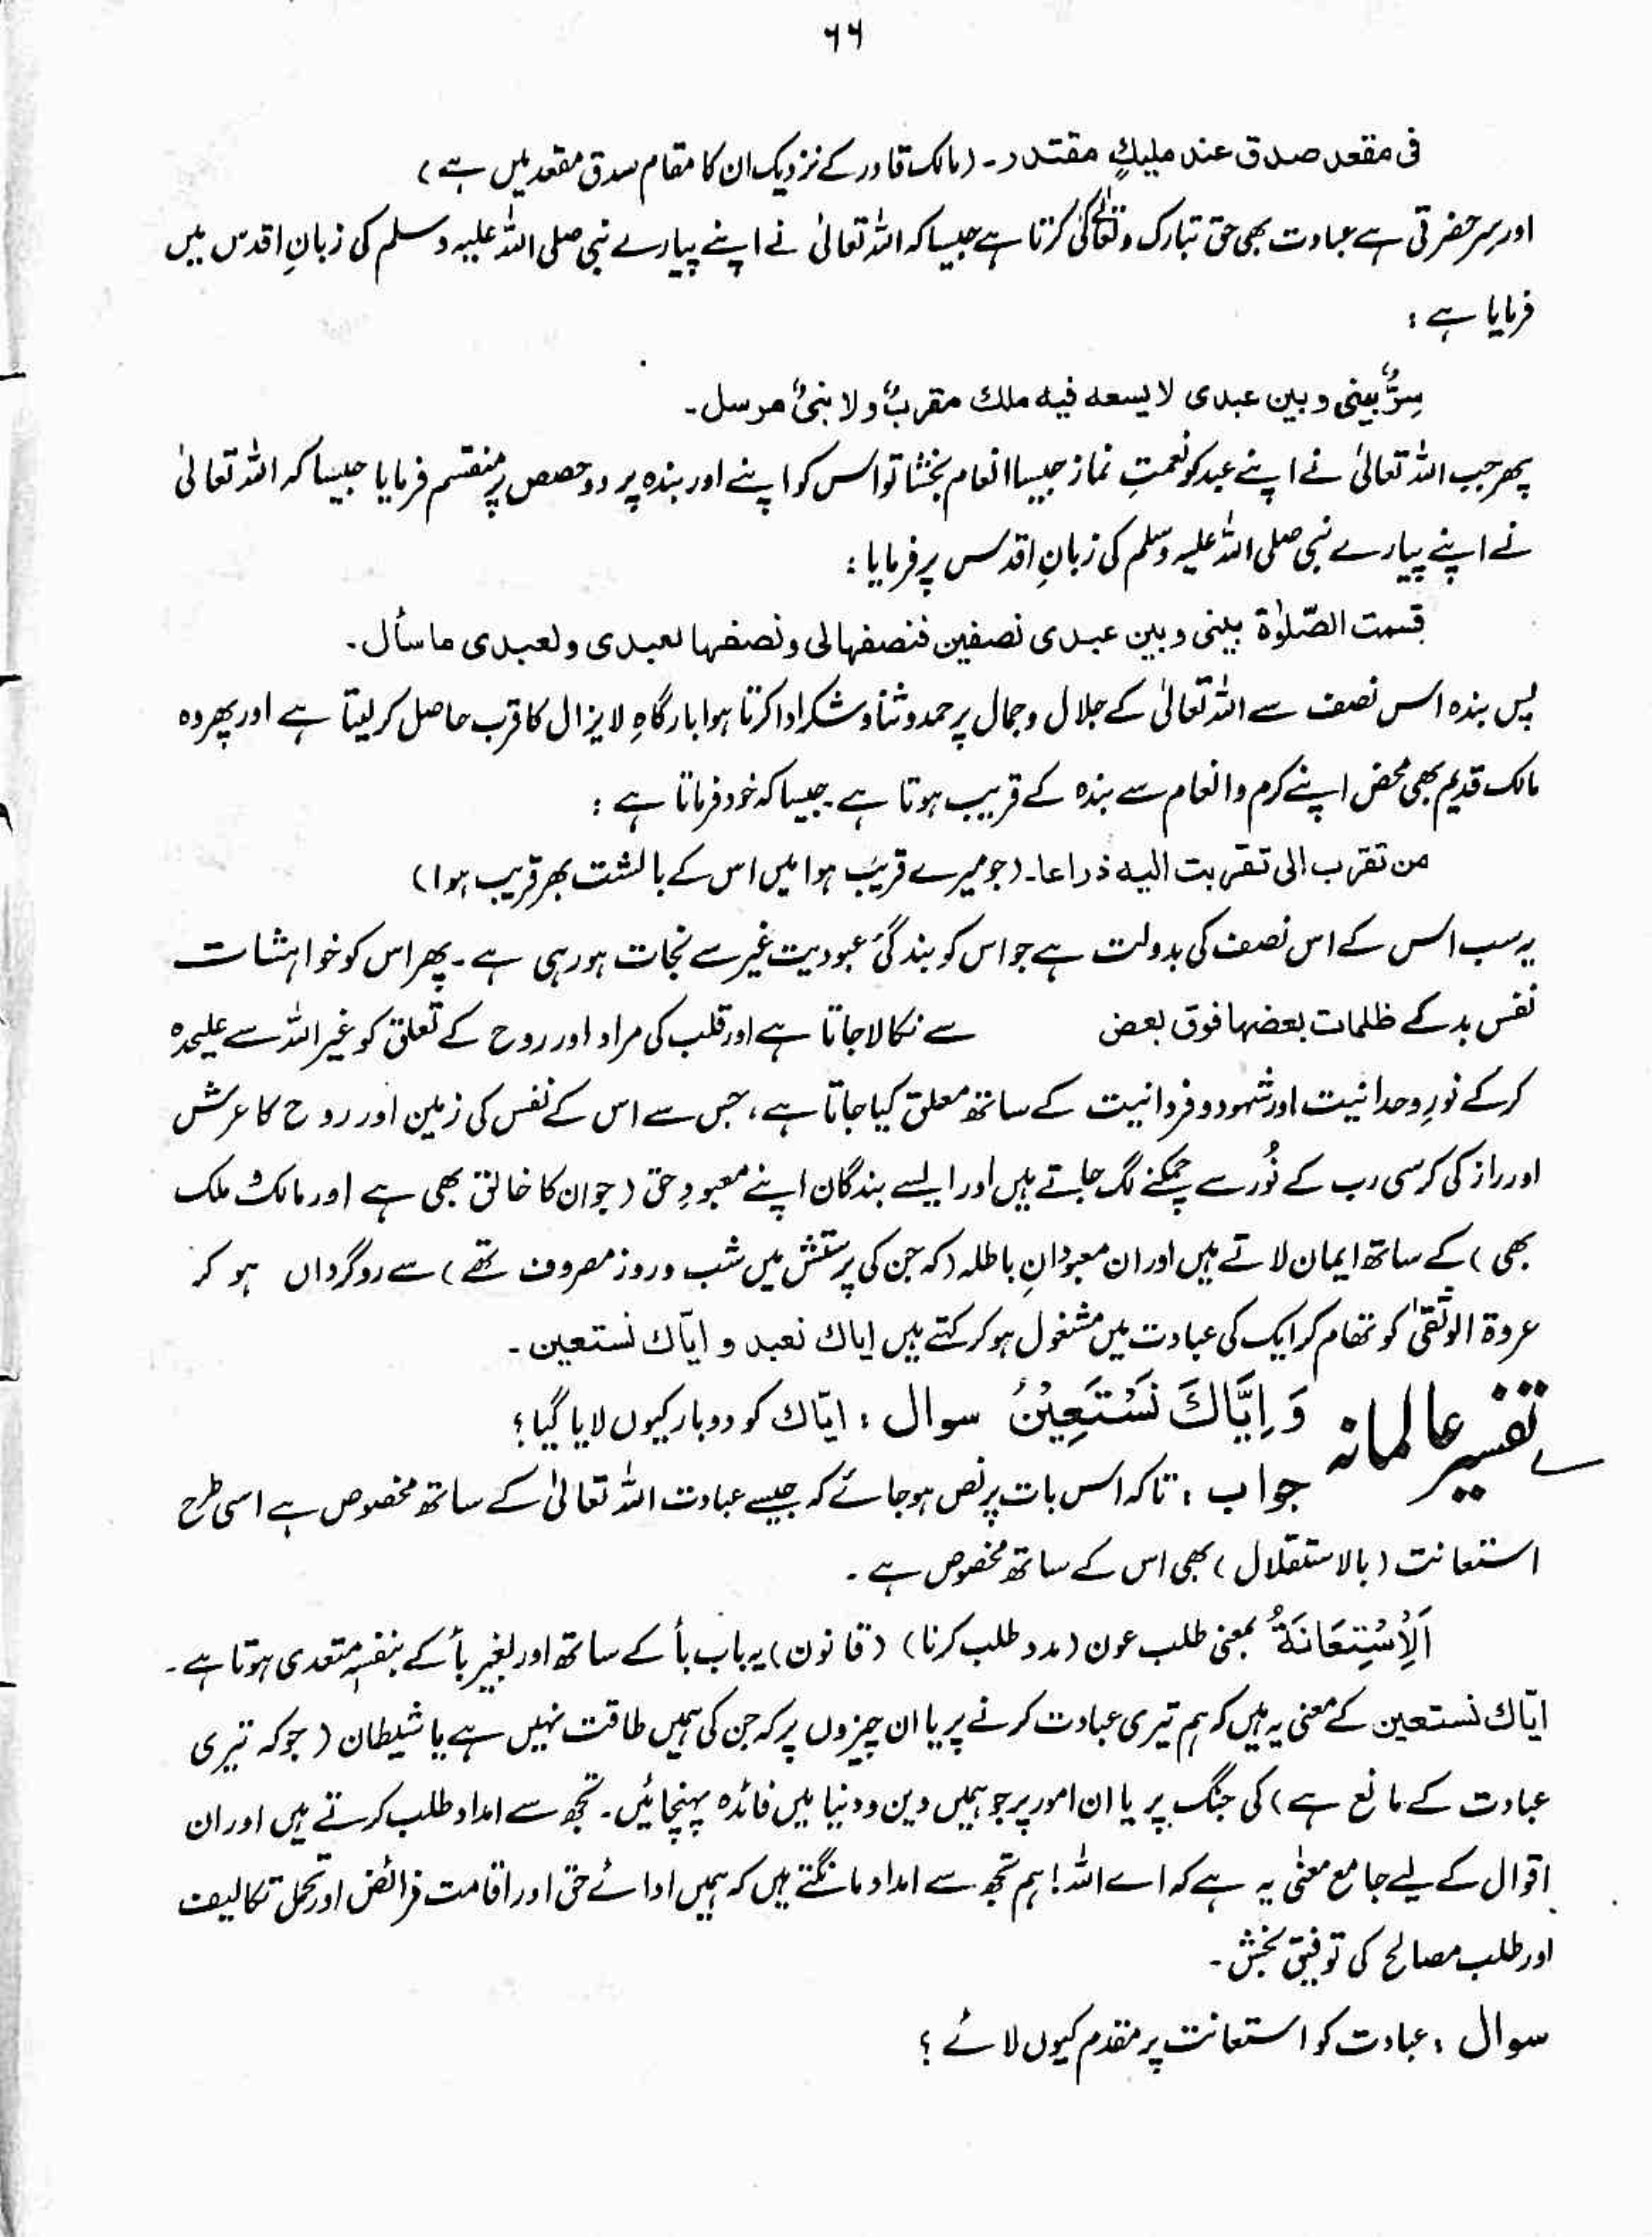 ۶۶
فی مقعد صدق عند ملیكٍ مقتدر۔ (مالک قادر کے نزدیک ان کا مقام صدق مقعد میں ہے)
اور سرحضرتی سے عبادت بھی حق تبارک وتعالٰی کی کرتا ہے جیسا کہ اللہ تعالیٰ نے اپنے پیارے نبی صلی اللہ علیہ وسلم کی زبانِ اقدس میں
فرمایا ہے :
سِرٌّ بینی و بین عبدی لا یسعہ فیہ ملك مقربٌ ولا نبیٌ مرسل۔
پھر جب اللہ تعالیٰ نے اپنے عبد کو نعمتِ نماز جیسا انعام بخشا تو اس کو اپنے اور بندہ پر دو حصص پر منقسم فرمایا جیسا کہ اللہ تعالیٰ
نے اپنے پیارے نبی صلی اللہ علیہ وسلم کی زبانِ اقدس پر فرمایا :
قسمت الصّلوٰة بینی و بین عبدی نصفین فنصفہا لی و نصفہا لعبدی و لعبدی ما سأل۔
پس بندہ اس نصف سے اللہ تعالیٰ کے جلال و جمال پر حمد و ثنا و شکر ادا کرتا ہوا بارگاہِ لایزال کا قرب حاصل کر لیتا ہے اور پھر وہ
مالک قدیم بھی محض اپنے کرم و انعام سے بندہ کے قریب ہوتا ہے۔ جیسا کہ خود فرماتا ہے :
من تقرب الی تقربت الیہ ذراعا۔ (جو میرے قریب ہوا میں اس کے بالشت بھر قریب ہوا)
یہ سب اس کے اس نصف کی بدولت ہے جو اس کو بندگیٔ عبودیت غیر سے نجات ہو رہی ہے۔ پھر اس کو خواہشات
نفس بد کے ظلمات بعضہا فوق بعض سے نکالا جاتا ہے اور قلب کی مراد اور روح کے تعلق کو غیر اللہ سے علیحدہ
کر کے نورِ وحدانیت اور شہود و فردانیت کے ساتھ معلق کیا جاتا ہے، جس سے اس کے نفس کی زمین اور روح کا عرش
اور راز کی کرسی رب کے نُور سے چمکنے لگ جاتے ہیں اور ایسے بندگان اپنے معبودِ حق (جو ان کا خالق بھی ہے اور مالک و ملک
بھی) کے ساتھ ایمان لاتے ہیں اور ان معبودانِ باطلہ (کہ جن کی پرستش میں شب و روز مصروف تھے) سے روگرداں ہو کر
عروة الوثقٰی کو تھام کر ایک کی عبادت میں مشغول ہو کر کہتے ہیں ایاك نعبد و ایّاك نستعین۔
تفسیر عالمانہ وَ اِیَّاكَ نَسْتَعِیْنُ سوال : ایّاك کو دو بار کیوں لایا گیا؟
جواب : تاکہ اس بات پر نص ہو جائے کہ جیسے عبادت اللہ تعالیٰ کے ساتھ مخصوص ہے اسی طرح
استعانت (بالاستقلال) بھی اس کے ساتھ مخصوص ہے۔
اَلْاِسْتِعَانَةُ بمعنی طلب عون (مدد طلب کرنا) (قانون) یہ باب بأ کے ساتھ اور بغیر بأ کے بنفسہٖ متعدی ہوتا ہے۔
ایّاك نستعین کے معنی یہ ہیں کہ ہم تیری عبادت کرنے پر یا ان چیزوں پر کہ جن کی ہمیں طاقت نہیں ہے یا شیطان (جو کہ تیری
عبادت کے مانع ہے) کی جنگ پر یا ان امور پر جو ہمیں دین و دنیا میں فائدہ پہنچائیں۔ تجھ سے امداد طلب کرتے ہیں اور ان
اقوال کے لیے جامع معنٰی یہ ہے کہ اے اللہ! ہم تجھ سے امداد مانگتے ہیں کہ ہمیں ادائے حق اور اقامت فرائض اور تحمل تکالیف
اور طلب مصالح کی توفیق بخش۔
سوال : عبادت کو استعانت پر مقدم کیوں لائے ؟